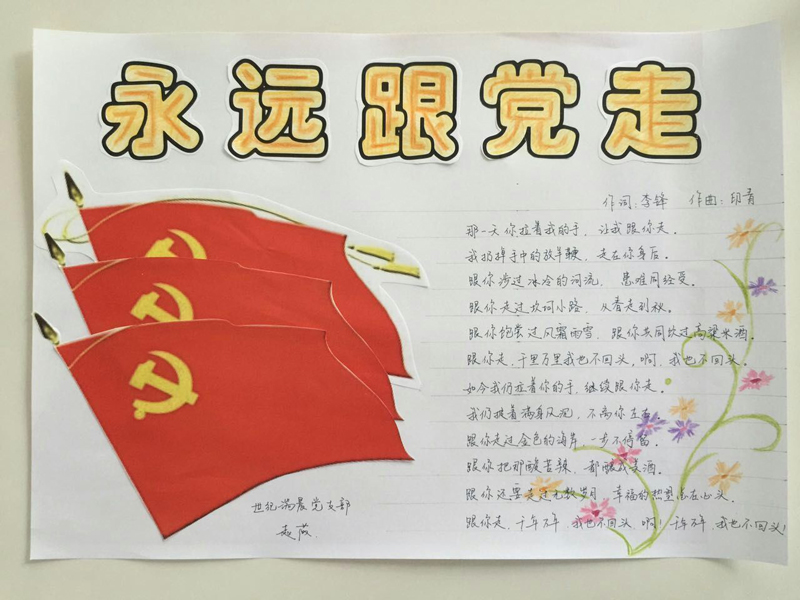 永远跟党走
作词：李锋 作曲：印青
那一天你拉着我的手，让我跟你走。
我扔掉手中的放羊鞭，走在你身后。
跟你涉过冰冷的河流，患难同经受。
跟你走过坎坷小路，从春走到秋。
跟你饱尝过风霜雨雪，跟你共同饮过高粱米酒。
跟你走，千里万里我也不回头，啊，我也不回头。
如今我仍拉着你的手，继续跟你走。
我仍披着满身风泥，不离你左右。
跟你走过金色的海岸，一步不停留。
跟你把那酸苦辣，都酿成美酒。
跟你还要走过无数岁月，幸福的热望总在心头。
跟你走，千年万年，我也不回头 啊！千年万年，我也不回头！
世纪满晨党支部
赵薇